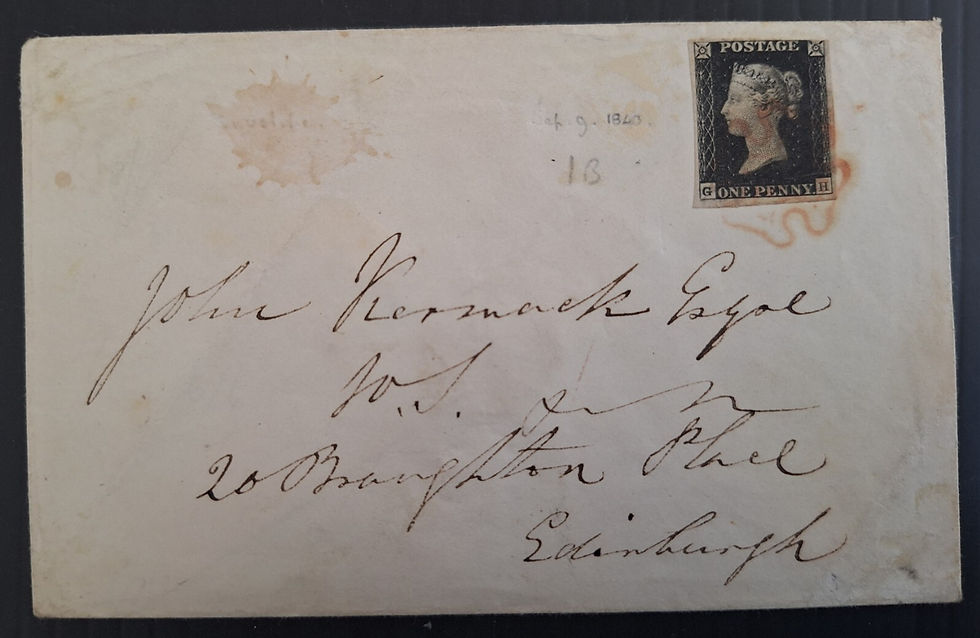 POSTAGE
Sep. 9. 1840.
1B
G ONE PENNY. H
John Kermack Esqre
W.S.
20 Broughton Place
Edinburgh